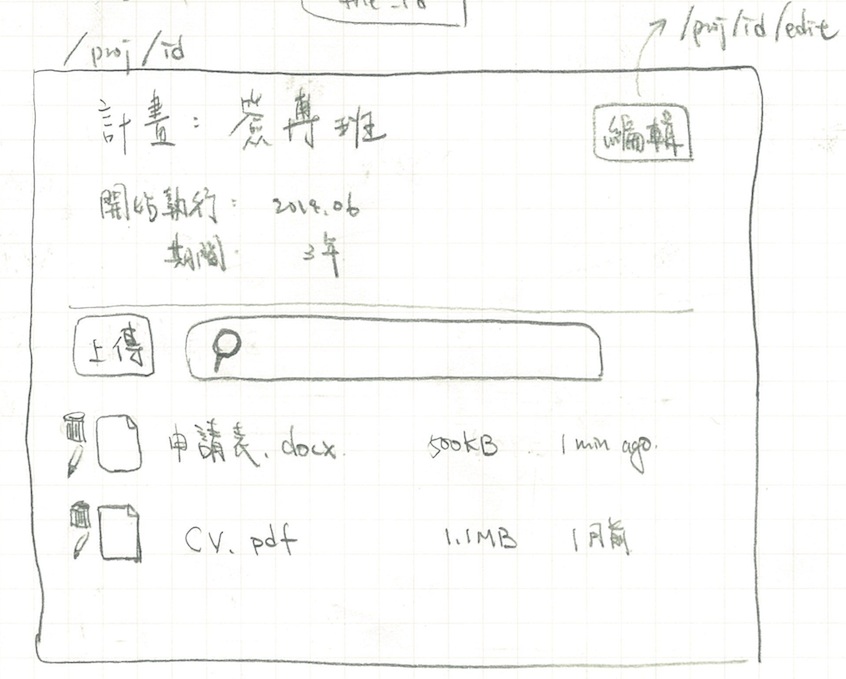 /proj/id
/proj/id/edit
計畫: 博班
編輯
開始執行: 2014.06
期間: 3年
上傳
申請表.docx 500KB 1 min ago.
CV.pdf 1.1MB 1月前